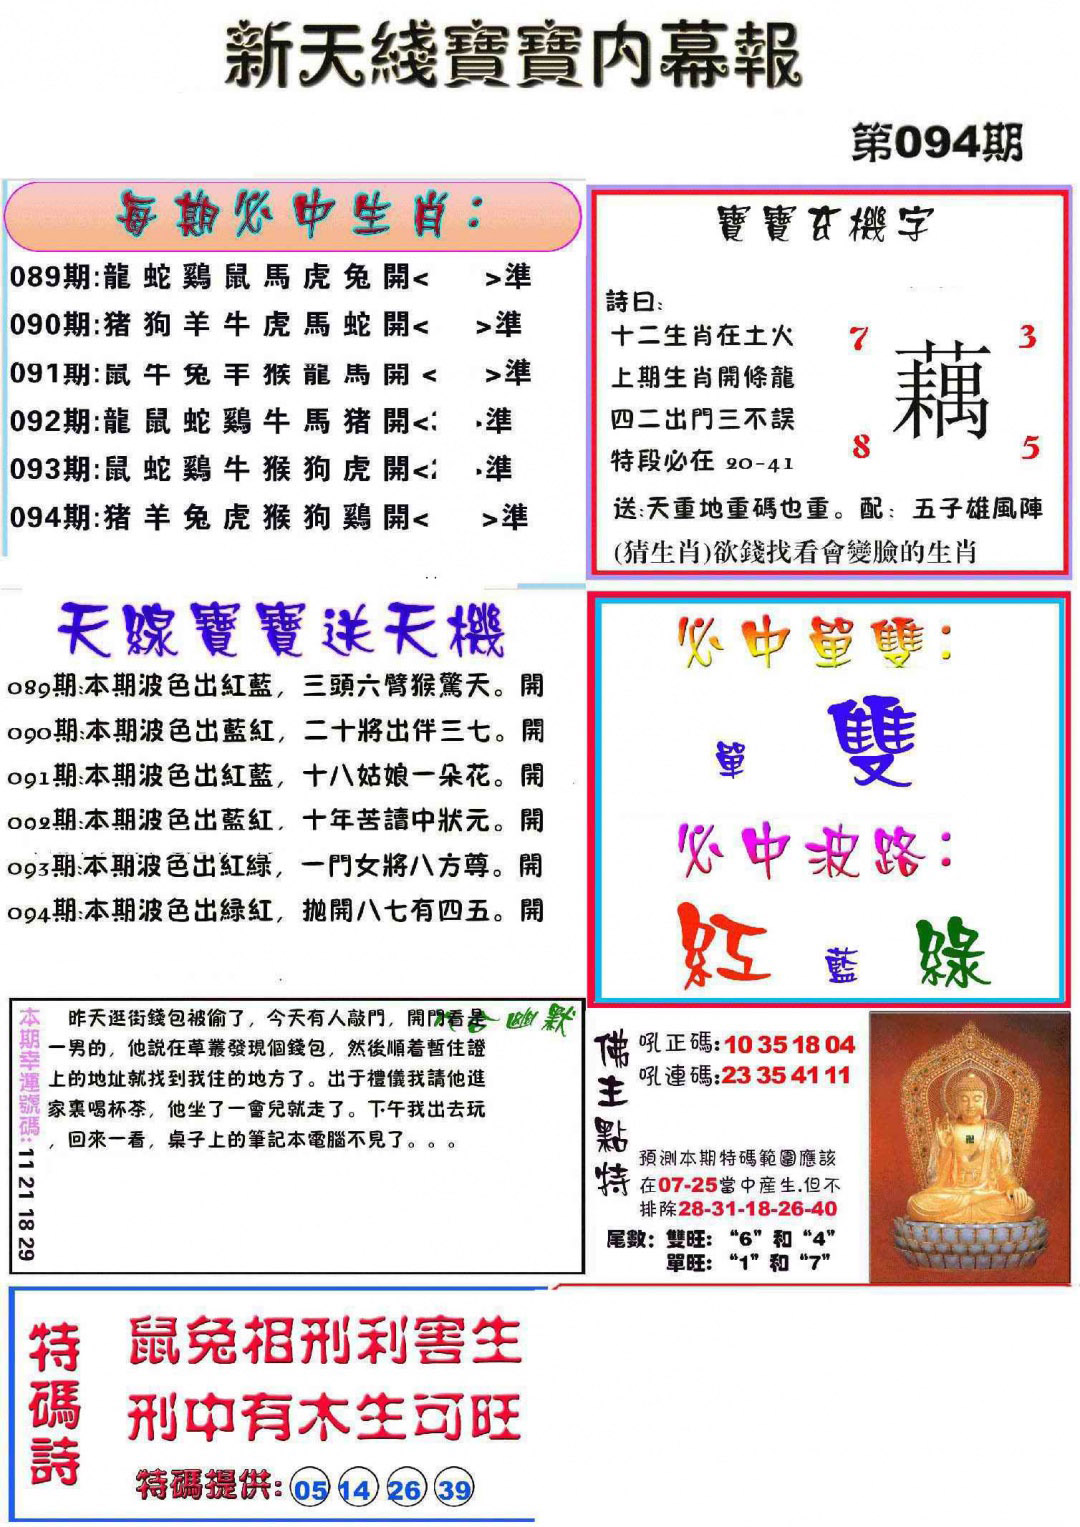 新天綫寶寶内幕報
第094期
每期必中生肖：
089期:龍蛇鷄鼠馬虎兔開< >準
090期:猪狗羊牛虎馬蛇開< >準
091期:鼠牛兔羊猴龍馬開< >準
092期:龍鼠蛇鷄牛馬猪開< 準
093期:鼠蛇鷄牛猴狗虎開< 準
094期:猪羊兔虎猴狗鷄開< >準
寶寶玄機字
詩曰:
十二生肖在土火
上期生肖開條龍
四二出門三不誤
特段必在 20-41
7 3
藕
8 5
送:天重地重碼也重。配：五子雄風陣
(猜生肖)欲錢找看會變臉的生肖
天線寶寶送天機
089期:本期波色出紅藍，三頭六臂猴驚天。開
090期:本期波色出藍紅，二十將出伴三七。開
091期:本期波色出紅藍，十八姑娘一朵花。開
092期:本期波色出藍紅，十年苦讀中狀元。開
093期:本期波色出紅綠，一門女將八方尊。開
094期:本期波色出綠紅，拋開八七有四五。開
必中單雙：
單 雙
必中波路：
紅 藍 綠
本期幸運號碼: 11 21 18 29
幽默
昨天逛街錢包被偷了，今天有人敲門，開門看是
一男的，他説在草叢發現個錢包，然後順着暫住證
上的地址就找到我住的地方了。出于禮儀我請他進
家裏喝杯茶，他坐了一會兒就走了。下午我出去玩
，回來一看，桌子上的筆記本電腦不見了。。。
佛主點特
吼正碼:10 35 18 04
吼連碼:23 35 41 11
預測本期特碼範圍應該
在07-25當中産生.但不
排除28-31-18-26-40
尾數：雙旺：“6”和“4”
單旺：“1”和“7”
特碼詩
鼠兔相刑利害生
刑中有木生可旺
特碼提供: 05 14 26 39